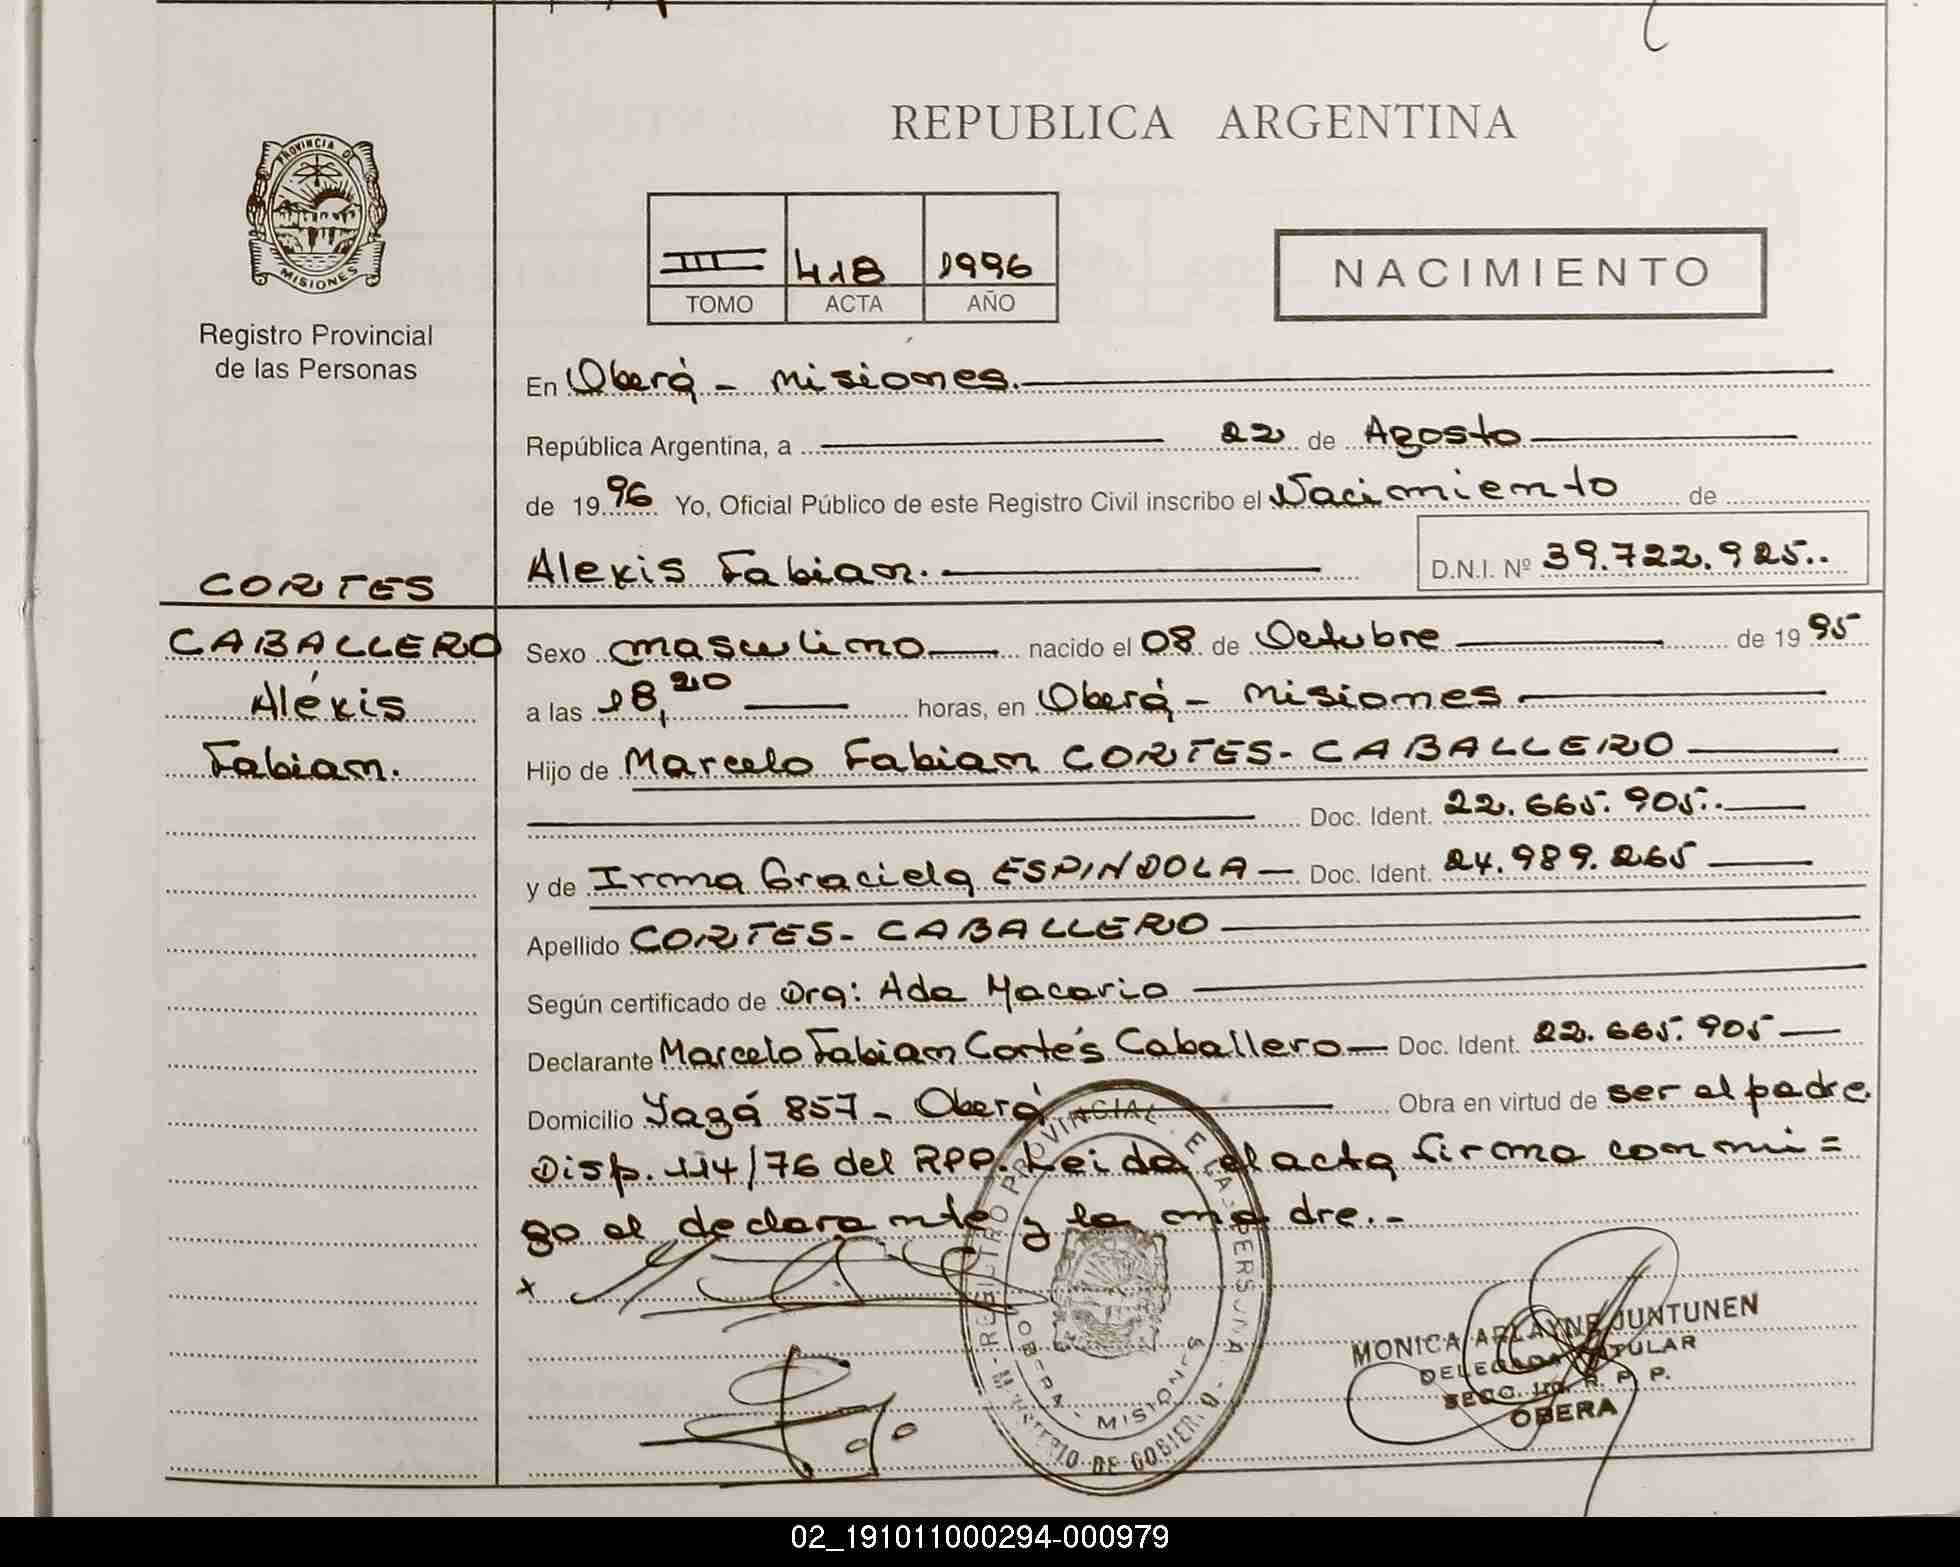 REPUBLICA ARGENTINA
PROVINCIA DE
MISIONES
Registro Provincial
de las Personas
III 418 1996
TOMO ACTA AÑO
NACIMIENTO
En Oberá - Misiones.
República Argentina, a 22 de Agosto
de 19 96 Yo, Oficial Público de este Registro Civil inscribo el Nacimiento de
Alexis Fabian. D.N.I. Nº 39.722.925..
CORTES
CABALLERO
Aléxis
Fabian.
Sexo masculino nacido el 08 de Octubre de 19 95
a las 18,20 horas, en Oberá - Misiones
Hijo de Marcelo Fabian CORTES- CABALLERO
Doc. Ident. 22.665.905.
y de Irma Graciela ESPINDOLA Doc. Ident. 24.989.265
Apellido CORTES- CABALLERO
Según certificado de Dra: Ada Macario
Declarante Marcelo Fabian Cortés Caballero Doc. Ident. 22.665.905
Domicilio Yagá 857 - Oberá Obra en virtud de ser el padre
Disp. 114/76 del RPP. Leida el acta firma conmi=
go el declarante y la madre.-
x
REGISTRO PROVINCIAL E LAS PERSONA
MINISTERIO DE GOBIERNO
OBERA - MISIONES
MONICA ARLAYNE JUNTUNEN
DELEGADA TITULAR
SECC. R. P. P.
OBERA
02_191011000294-000979